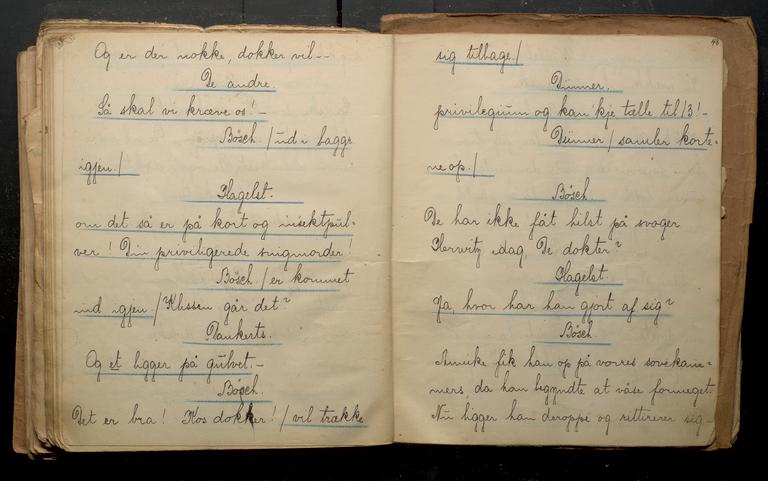 Og er der nokke, dokker vil--
De andre.
Så skal vi kræve os! -
Bösch /ud i baggr
igjen./
Hagelst.
om det så er på kort og insektpul-
ver! Din priviligerede snigmorder!
Bösch /er kommet
ind igjen./ Klissen går det?
Plankerts.
Og et ligger på gulvet. -
Bösch.
Det er bra! Kos dokker! /vil trække
46
sig tilbage./
Dünner.
privilegium og kan'kje tælle til 13! -
Dünner/ samler korte-
ne op./
Bösch.
De har ikke fåt hilst på svoger
Herwitz idag, De dokter?
Hagelst.
Ja, hvor har han gjort af sig?
Bösch.
Annike fik han op på vorres sovekam-
mers, da han begyndte at våse formeget.
Nu ligger han deroppe og rettirerer sig -